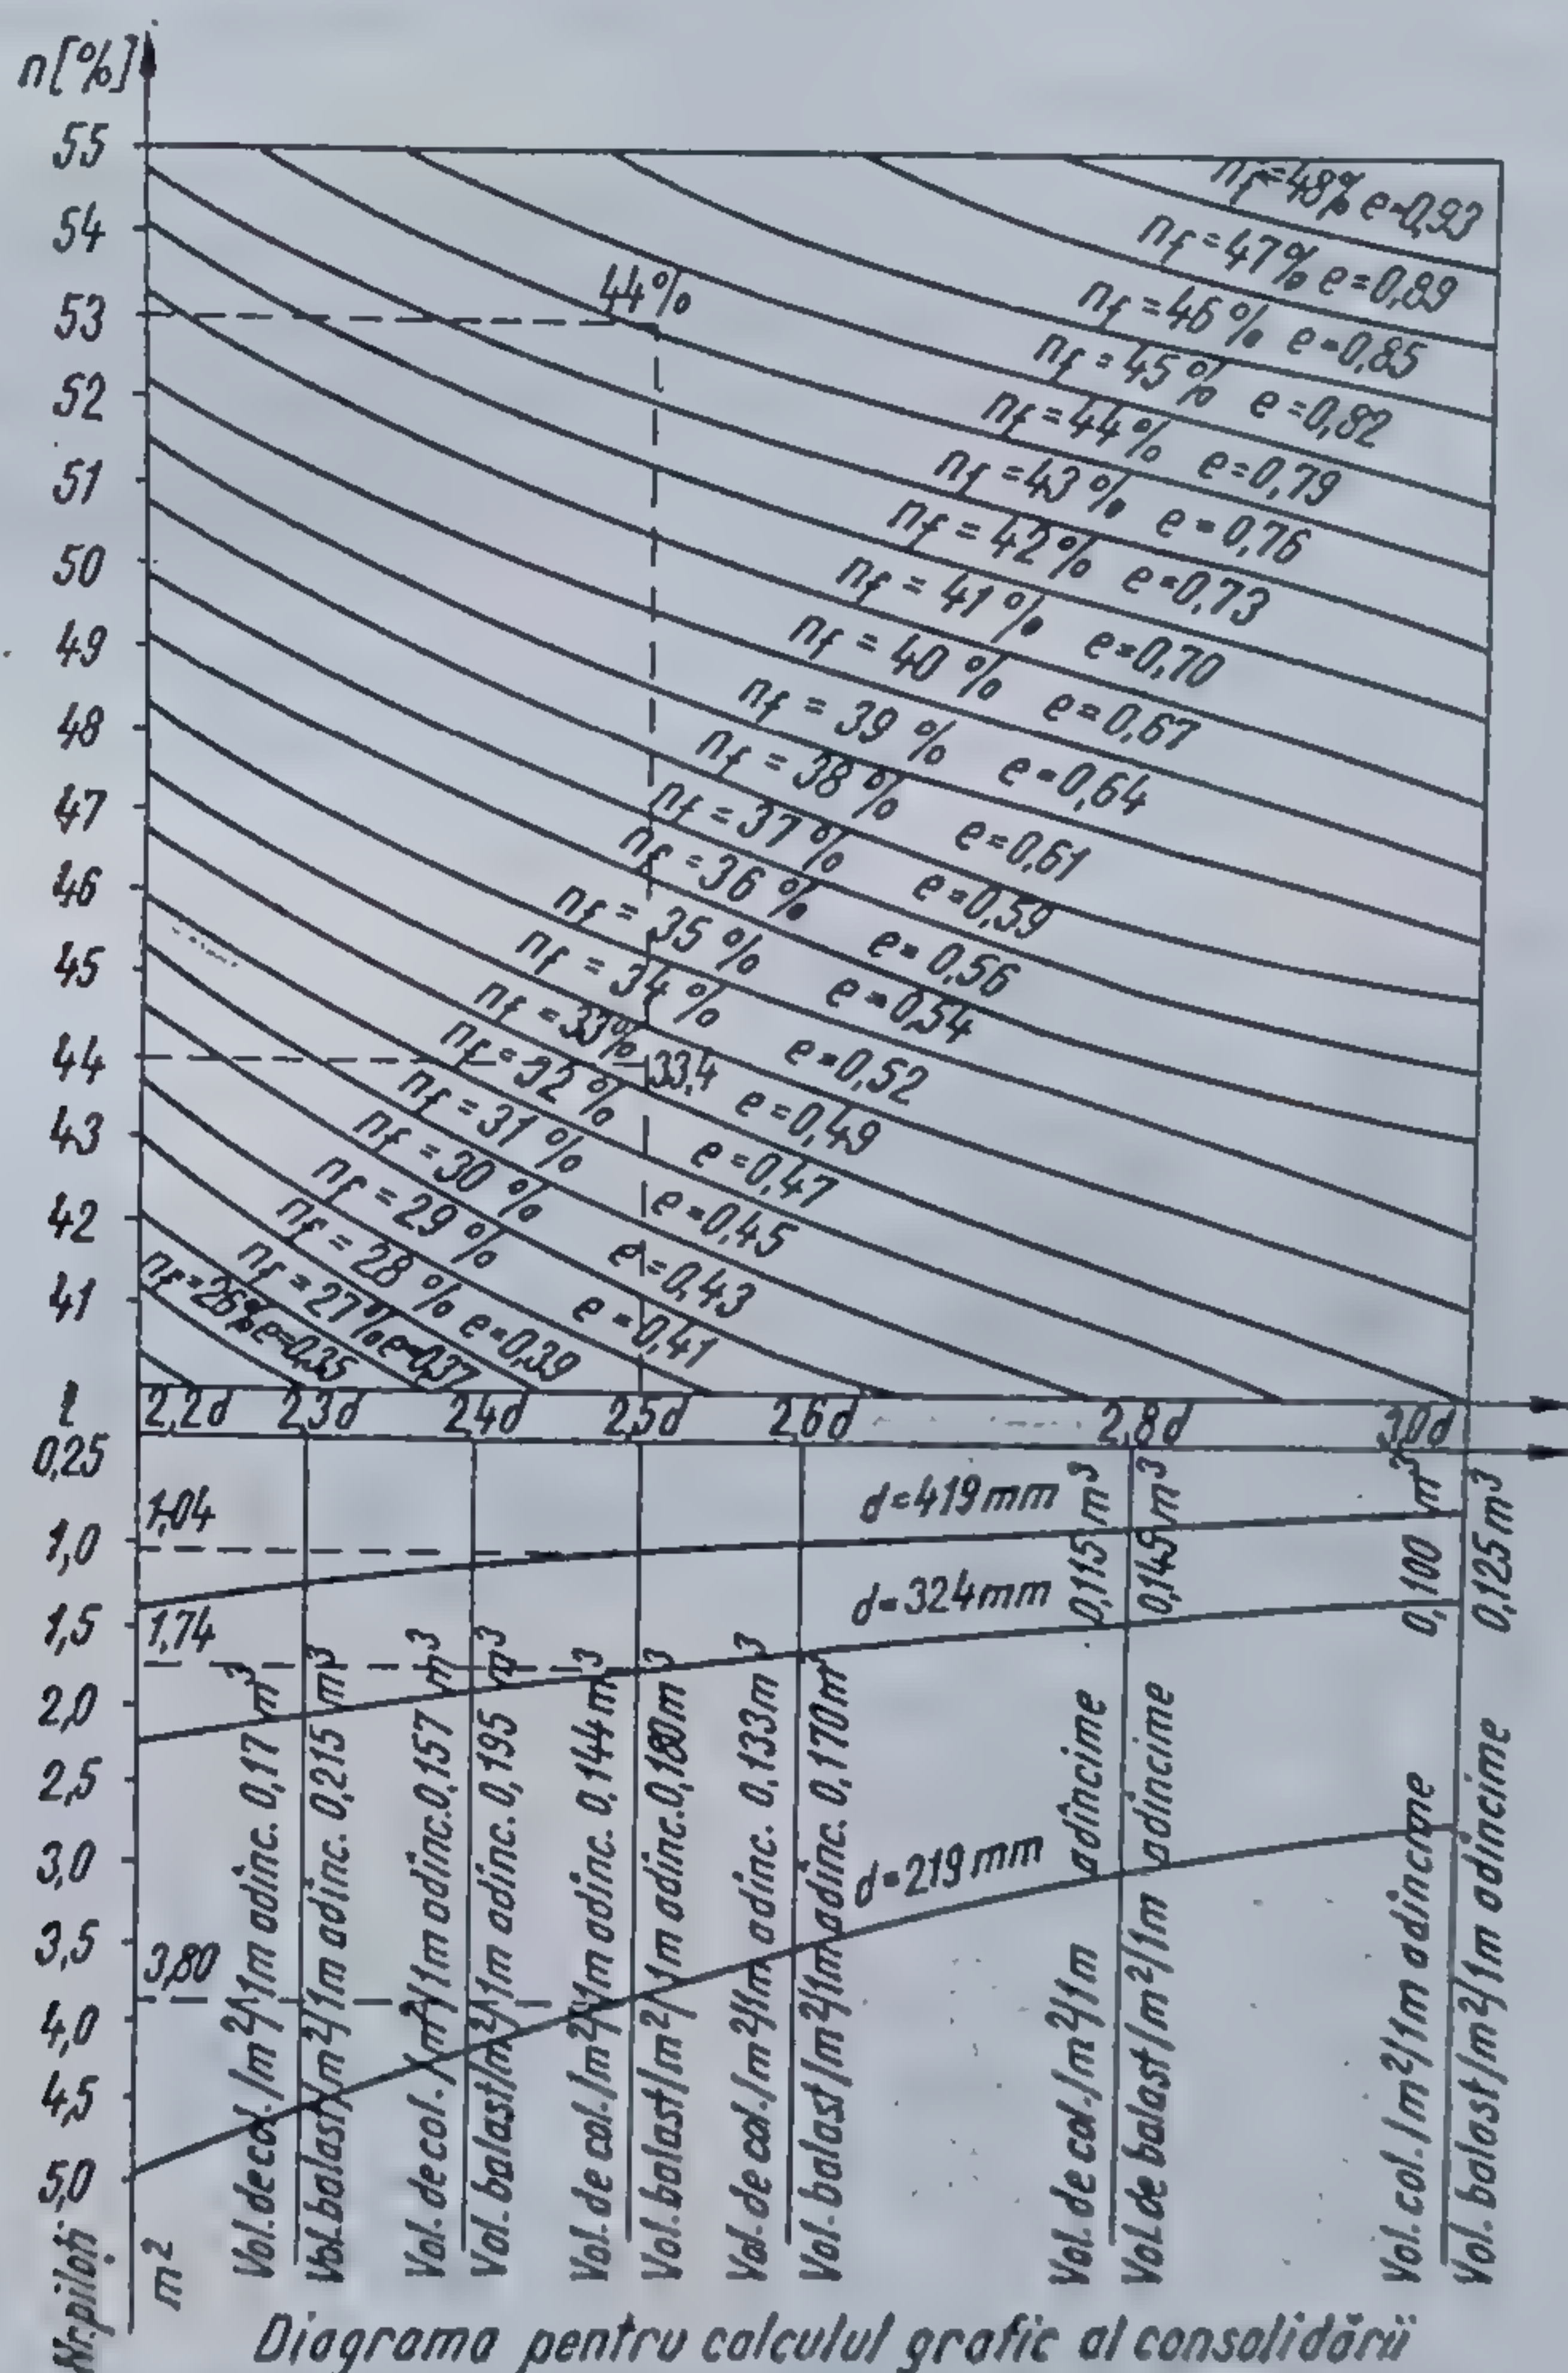 n[%]
55
54
53
52
51
50
49
48
47
46
45
44
43
42
41
44%
33,4
nf=48% e=0,93
nf=47% e=0,89
nf=46% e=0,85
nf=45% e=0,82
nf=44% e=0,79
nf=43% e=0,76
nf=42% e=0,73
nf=41% e=0,70
nf=40% e=0,67
nf=39% e=0,64
nf=38% e=0,61
nf=37% e=0,59
nf=36% e=0,56
nf=35% e=0,54
nf=34% e=0,52
nf=33% e=0,49
nf=32% e=0,47
nf=31% e=0,45
nf=30% e=0,43
nf=29% e=0,41
nf=28% e=0,39
nf=27% e=0,37
nf=26% e=0,35
l 2,2d 2,3d 2,4d 2,5d 2,6d 2,8d 3,0d
0,25
1,0
1,5
2,0
2,5
3,0
3,5
4,0
4,5
5,0
1,04
1,74
3,80
d=419mm
d=324mm
d=219mm
Vol. de col./m²/1m adinc. 0,17 m³
Vol. balast/m²/1m adinc. 0,215 m³
Vol. de col./m²/1m adinc. 0,157 m³
Vol. balast/m²/1m adinc. 0,195 m³
Vol. de col./m²/1m adinc. 0,144m³
Vol. balast/m²/1m adinc. 0,180m³
Vol. de col./m²/1m adinc. 0,133m³
Vol. balast/m²/1m adinc. 0,170m³
Vol. de col./m²/1m adîncime 0,115 m³
Vol. de balast/m²/1m adincime 0,145 m³
Vol. col./m²/1m adincime 0,100 m³
Vol. balast/m²/1m adincime 0,125 m³
Nr.piloți
m²
Diagrama pentru calculul grafic al consolidării